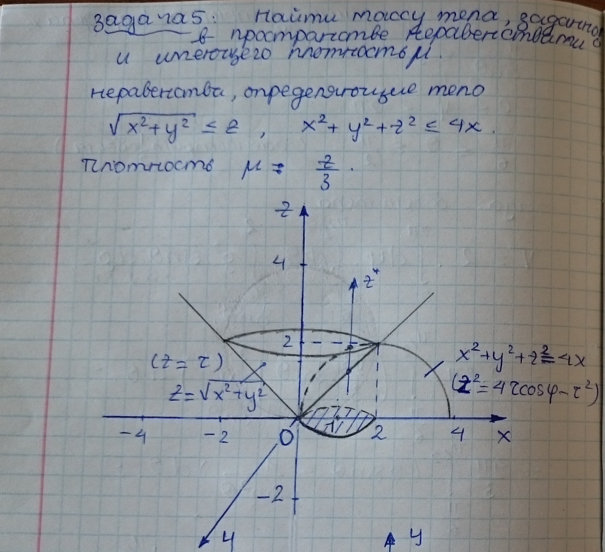 Задача 5: Найти массу тела, заданного
в пространстве неравенствами
и имеющего плотность μ.
неравенства, определяющие тело
√x²+y² ≤ z , x²+y²+z² ≤ 4x.
плотность μ = z/3 .
z
4
z*
2
(z = r)
z=√x²+y²
x²+y²+z²=4x
(z²=4rcosφ-r²)
-4 -2 0 2 4 x
-2
y y